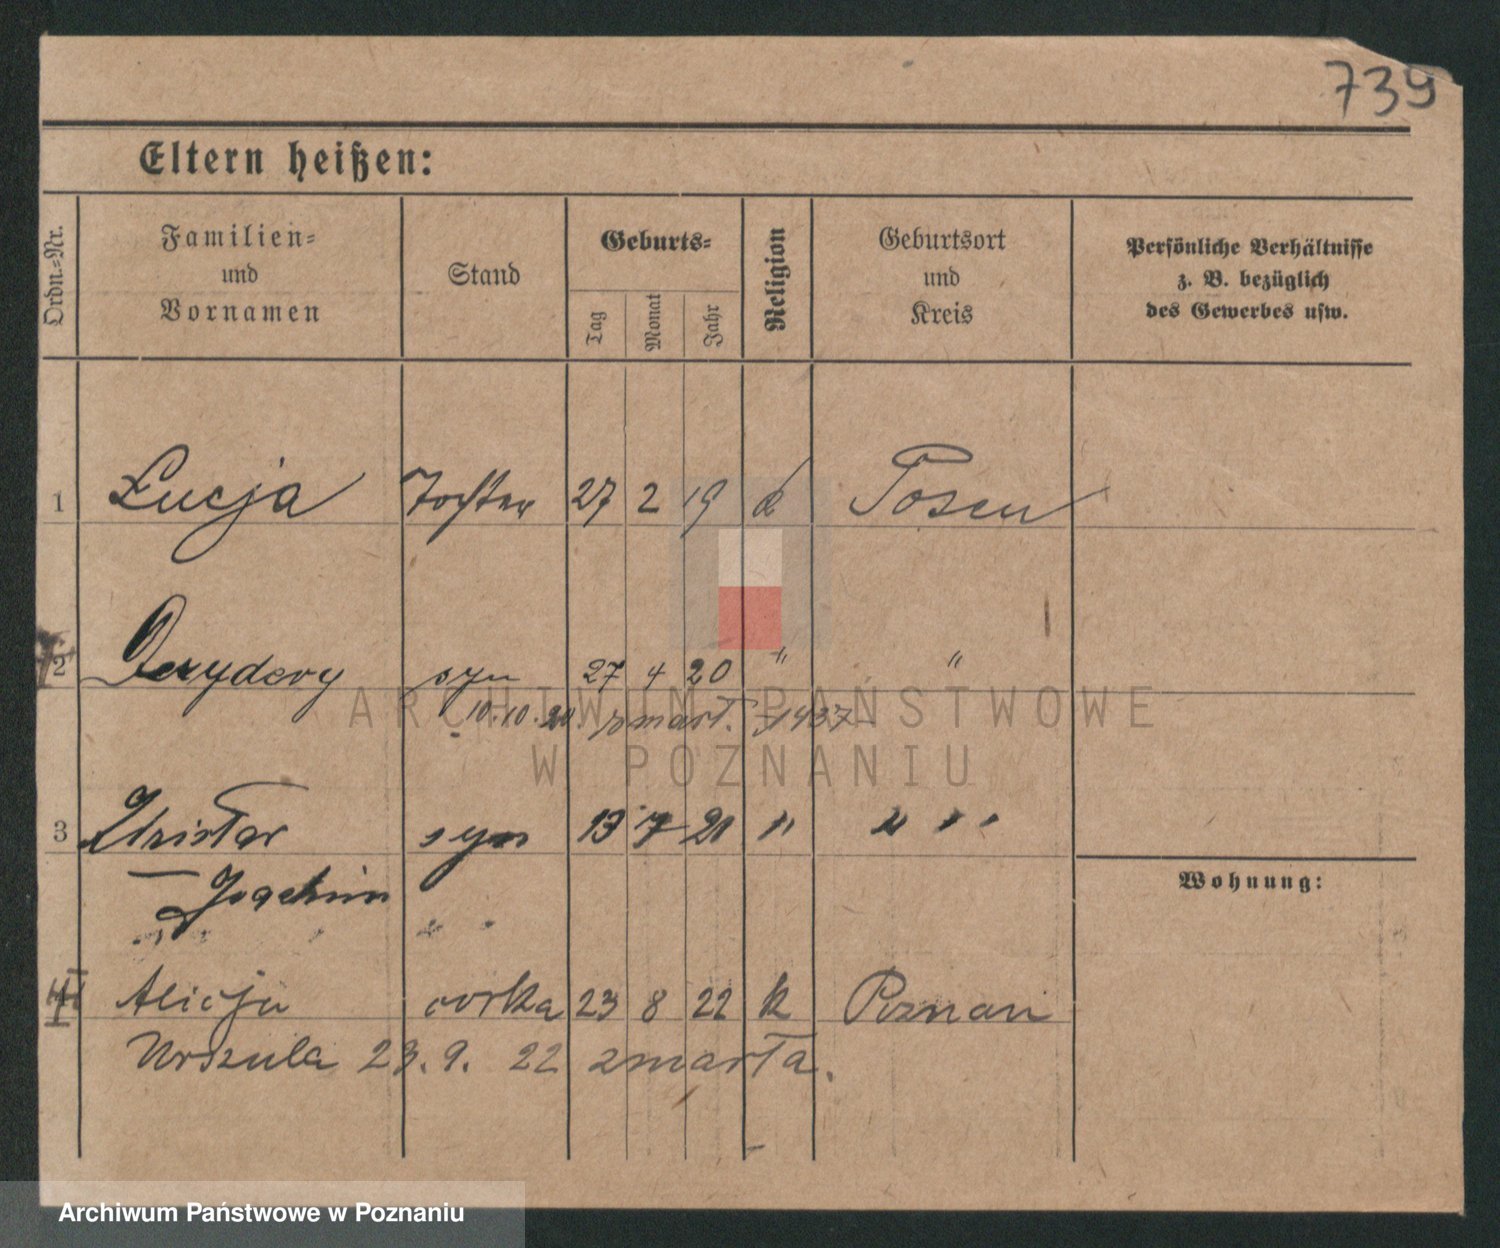 739
Eltern heißen:
Ordn.=Nr.
Familien=
und
Vornamen
Stand
Geburts=
Tag
Monat
Jahr
Religion
Geburtsort
und
Kreis
Persönliche Verhältnisse
z. B. bezüglich
des Gewerbes usw.
1 Łucja Tochter 27 2 19 k Posen
2 Dezydery syn 27 4 20 " "
10.10.20 zmarł.
3 syn 13 7 21 " "
Joachim
Wohnung:
4 Alicja córka 23 8 22 k Poznań
Urszula 23. 9. 22 zmarła.
ARCHIWUM PAŃSTWOWE
W POZNANIU
Archiwum Państwowe w Poznaniu